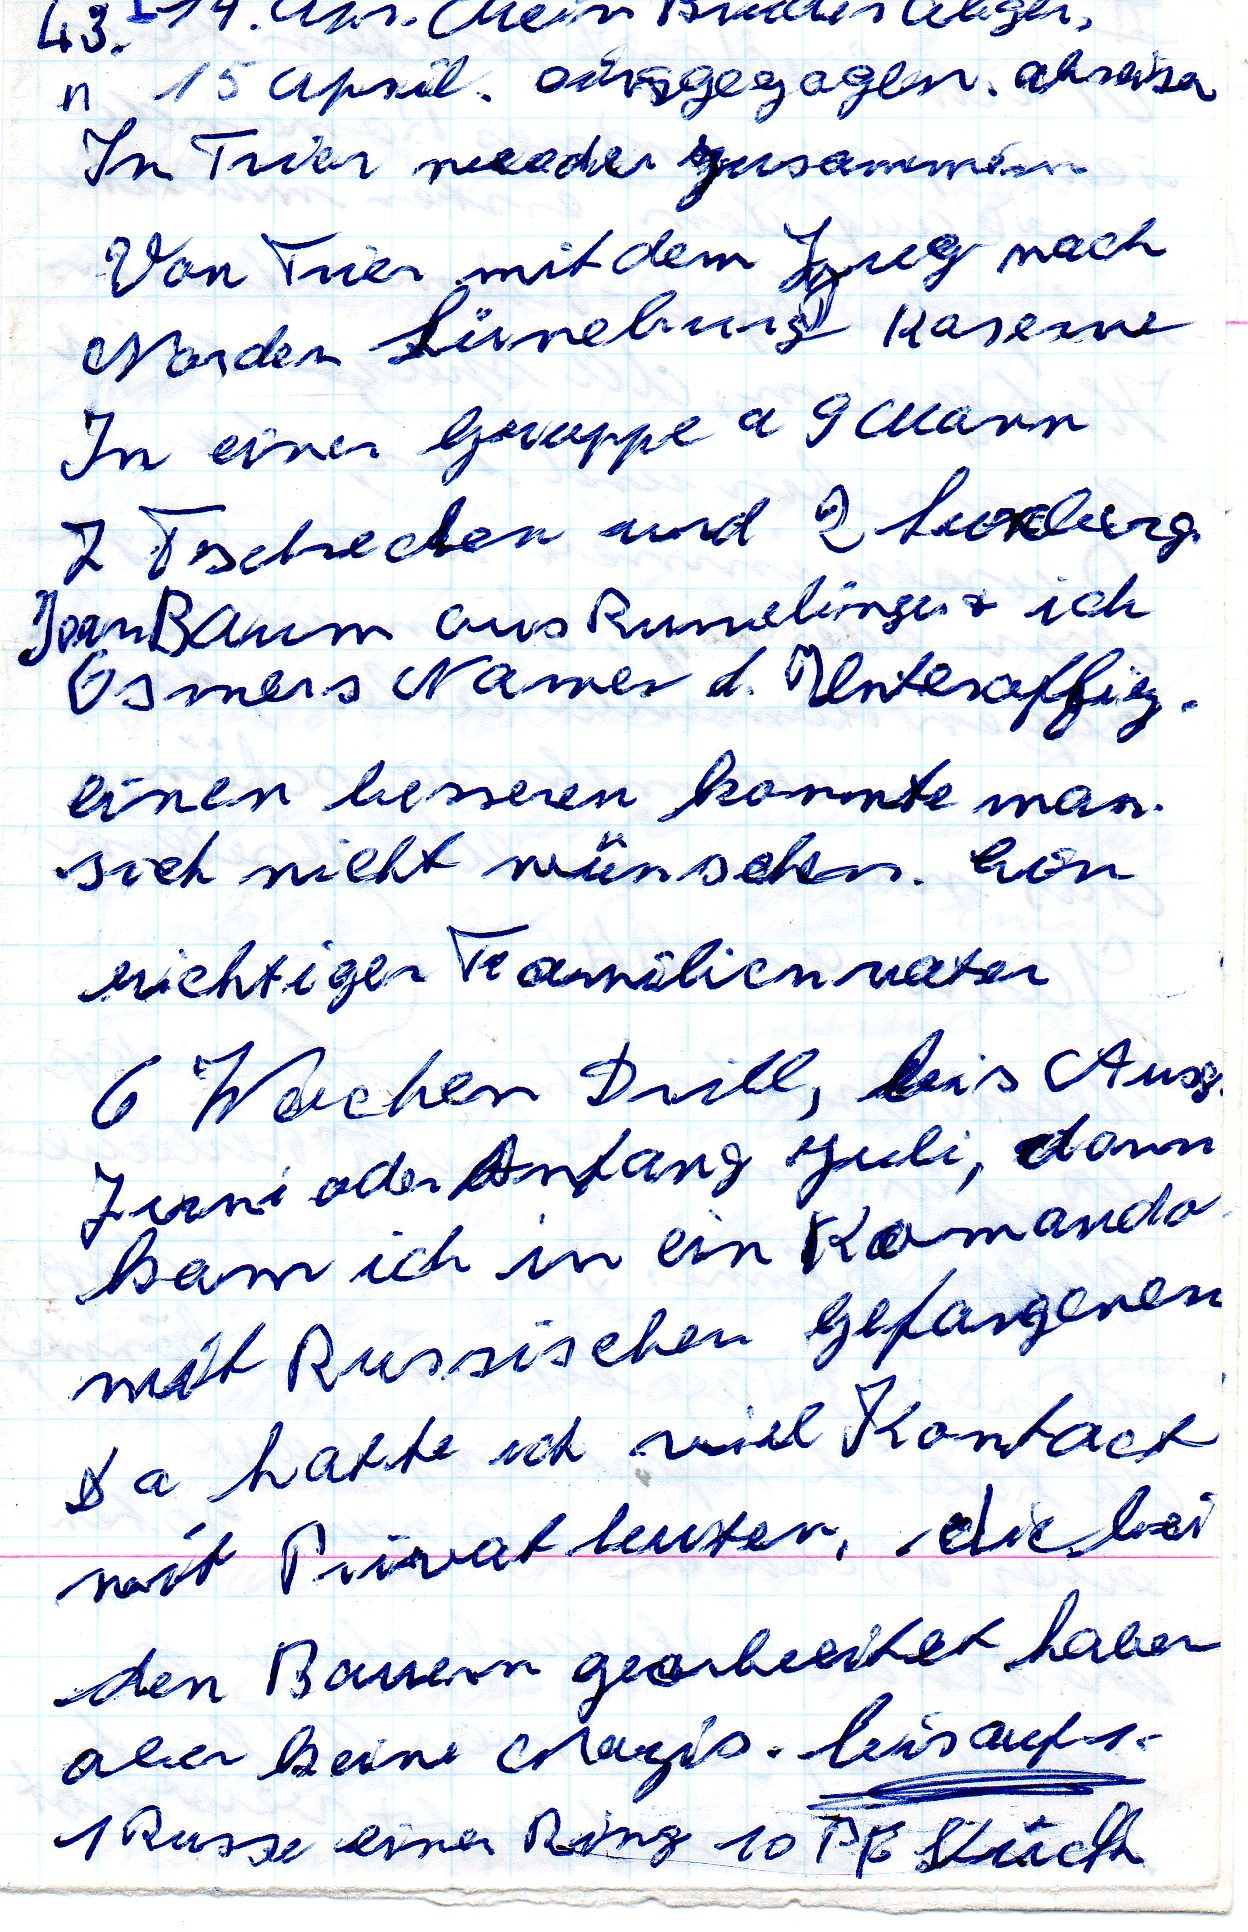 43. 14. Apr. Mein Bruder
n 15 April. eingezogen. abreisen
In Trier wieder zusammen
Von Trier mit dem Zug nach
Norden Lüneburg Kaserne
In einer Gruppe a 9 Mann
7 Tschechen und 2 Luxburg.
Jean BAum aus Rumelingen + ich
Osmers Namen d. Unteroffiz.
einen besseren konnte man
sich nicht wünschen. Ein
richtiger Familienvater
6 Wochen Drill, bis Ausg.
Juni oder Anfang Juli, dann
kam ich in ein Komando
mit Russischen gefangenen
Da hatte ich viel Kontact
mit Privat leuten, die bei
den Bauern gearbeitet haben
aber keine Nazis. bis auf 1.
1 Russe einen Ring 10 Pf Stück